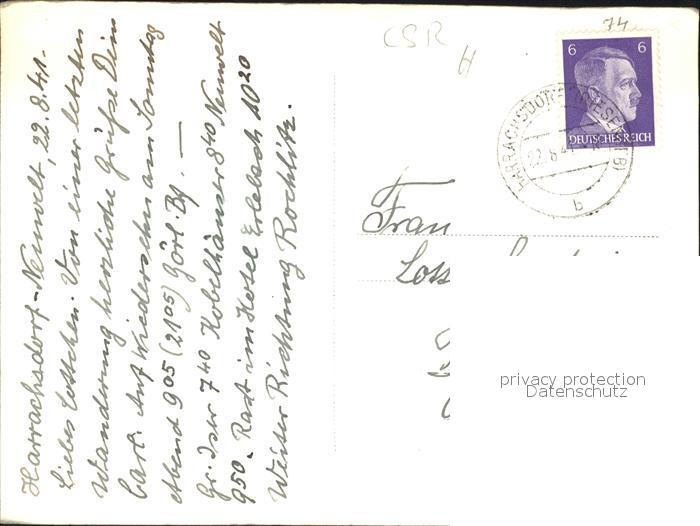 Harrachsdorf-Neuwelt, 22.8.41.
Liebes Lottchen. Von einer letzten
Wanderung herzliche Grüße Dein
Carl. Auf Wiedersehn am Sonntag
abend 9 05 (21 05) Görl. Bf. —
Gr. Iser 7 40 Kobelhäuser 8 40 Neuwelt
9 50. Rast im Hotel Erlebach 10 20
Weiter Richtung Rochlitz.
CSR
74
6 6
DEUTSCHES REICH
HARRACHSDORF (RIESENGEB)
22.8.4
b
Frau
privacy protection
Datenschutz